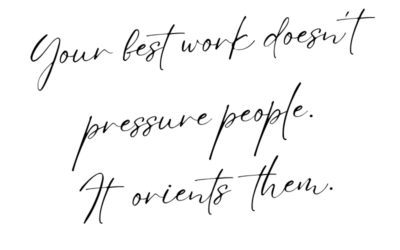 Your best work doesn't
pressure people.
It orients them.